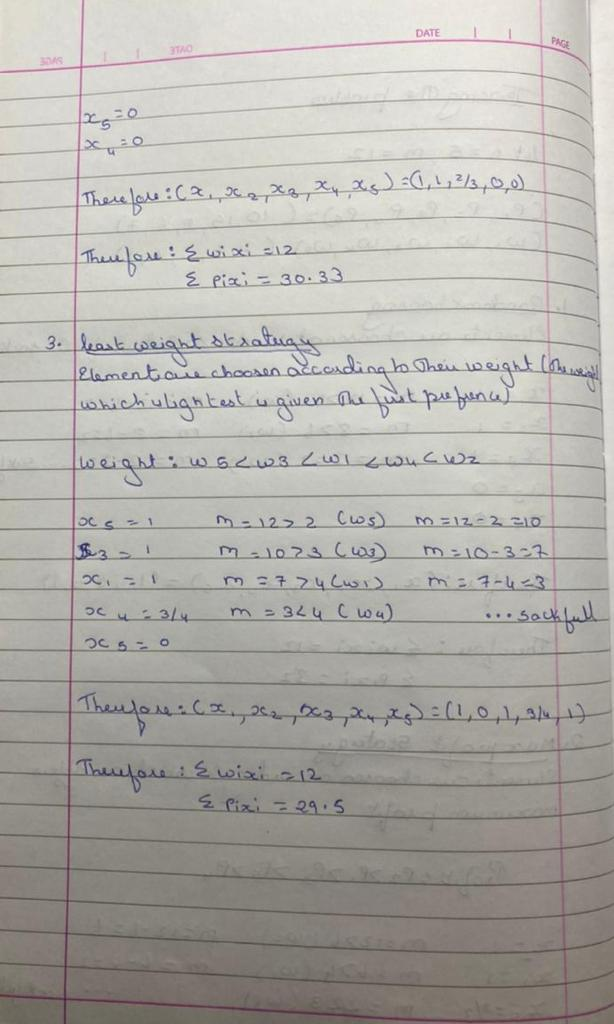 DATE
PAGE
x5 = 0
x4 = 0
Therefore : (x1, x2, x3, x4, x5) = (1, 1, 2/3, 0, 0)
Therefore : Σ wixi = 12
Σ pixi = 30.33
3. least weight strategy
Element are choosen according to their weight (the weight
which is lightest is given the first prefrence)
weight : w5 < w3 < w1 < w4 < w2
x5 = 1 m = 12 > 2 (w5) m = 12 - 2 = 10
x3 = 1 m = 10 > 3 (w3) m = 10 - 3 = 7
x1 = 1 m = 7 > 4 (w1) m = 7 - 4 = 3
x4 = 3/4 m = 3 < 4 (w4) ... sack full
x5 = 0
Therefore : (x1, x2, x3, x4, x5) = (1, 0, 1, 3/4, 1)
Therefore : Σ wixi = 12
Σ pixi = 29.5